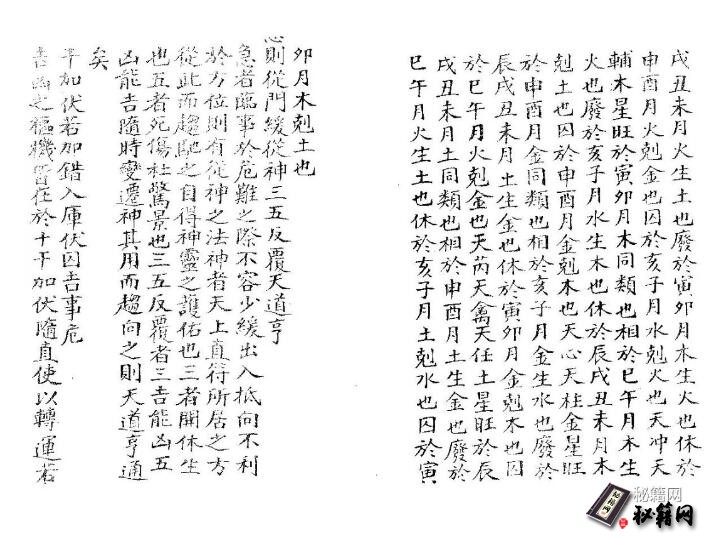 戌丑未月火生土也廢於寅卯月木生火也休於
申酉月火剋金也囚於亥子月水剋火也天冲天
輔木星旺於寅卯月木同類也相於巳午月木生
火也廢於亥子月水生木也休於辰戌丑未月木
剋土也囚於申酉月金剋木也天心天柱金星旺
於申酉月金同類也相於亥子月金生水也廢於
辰戌丑未月土生金也休於寅卯月金剋木也囚
於巳午月火剋金也天芮天禽天任土星旺於辰
戌丑未月土同類也相於申酉月土生金也廢於
巳午月火生土也休於亥子月土剋水也囚於寅
卯月木剋土也
急則從門緩從神三五反覆天道亨
急者臨事於危難之際不容少緩出入抵向不利
於方位則有從神之法神者天上直符所居之方
從此而趨馳之自得神靈之護佑也三者開休生
也五者死傷杜驚景也三五反覆者三吉能凶五
凶能吉隨時變遷神其用而趨向之則天道亨通
矣
干加伏若加錯入庫伏囚吉事危
吉凶之樞機皆在於十干加伏隨直使以轉運若
秘籍网
秘籍网